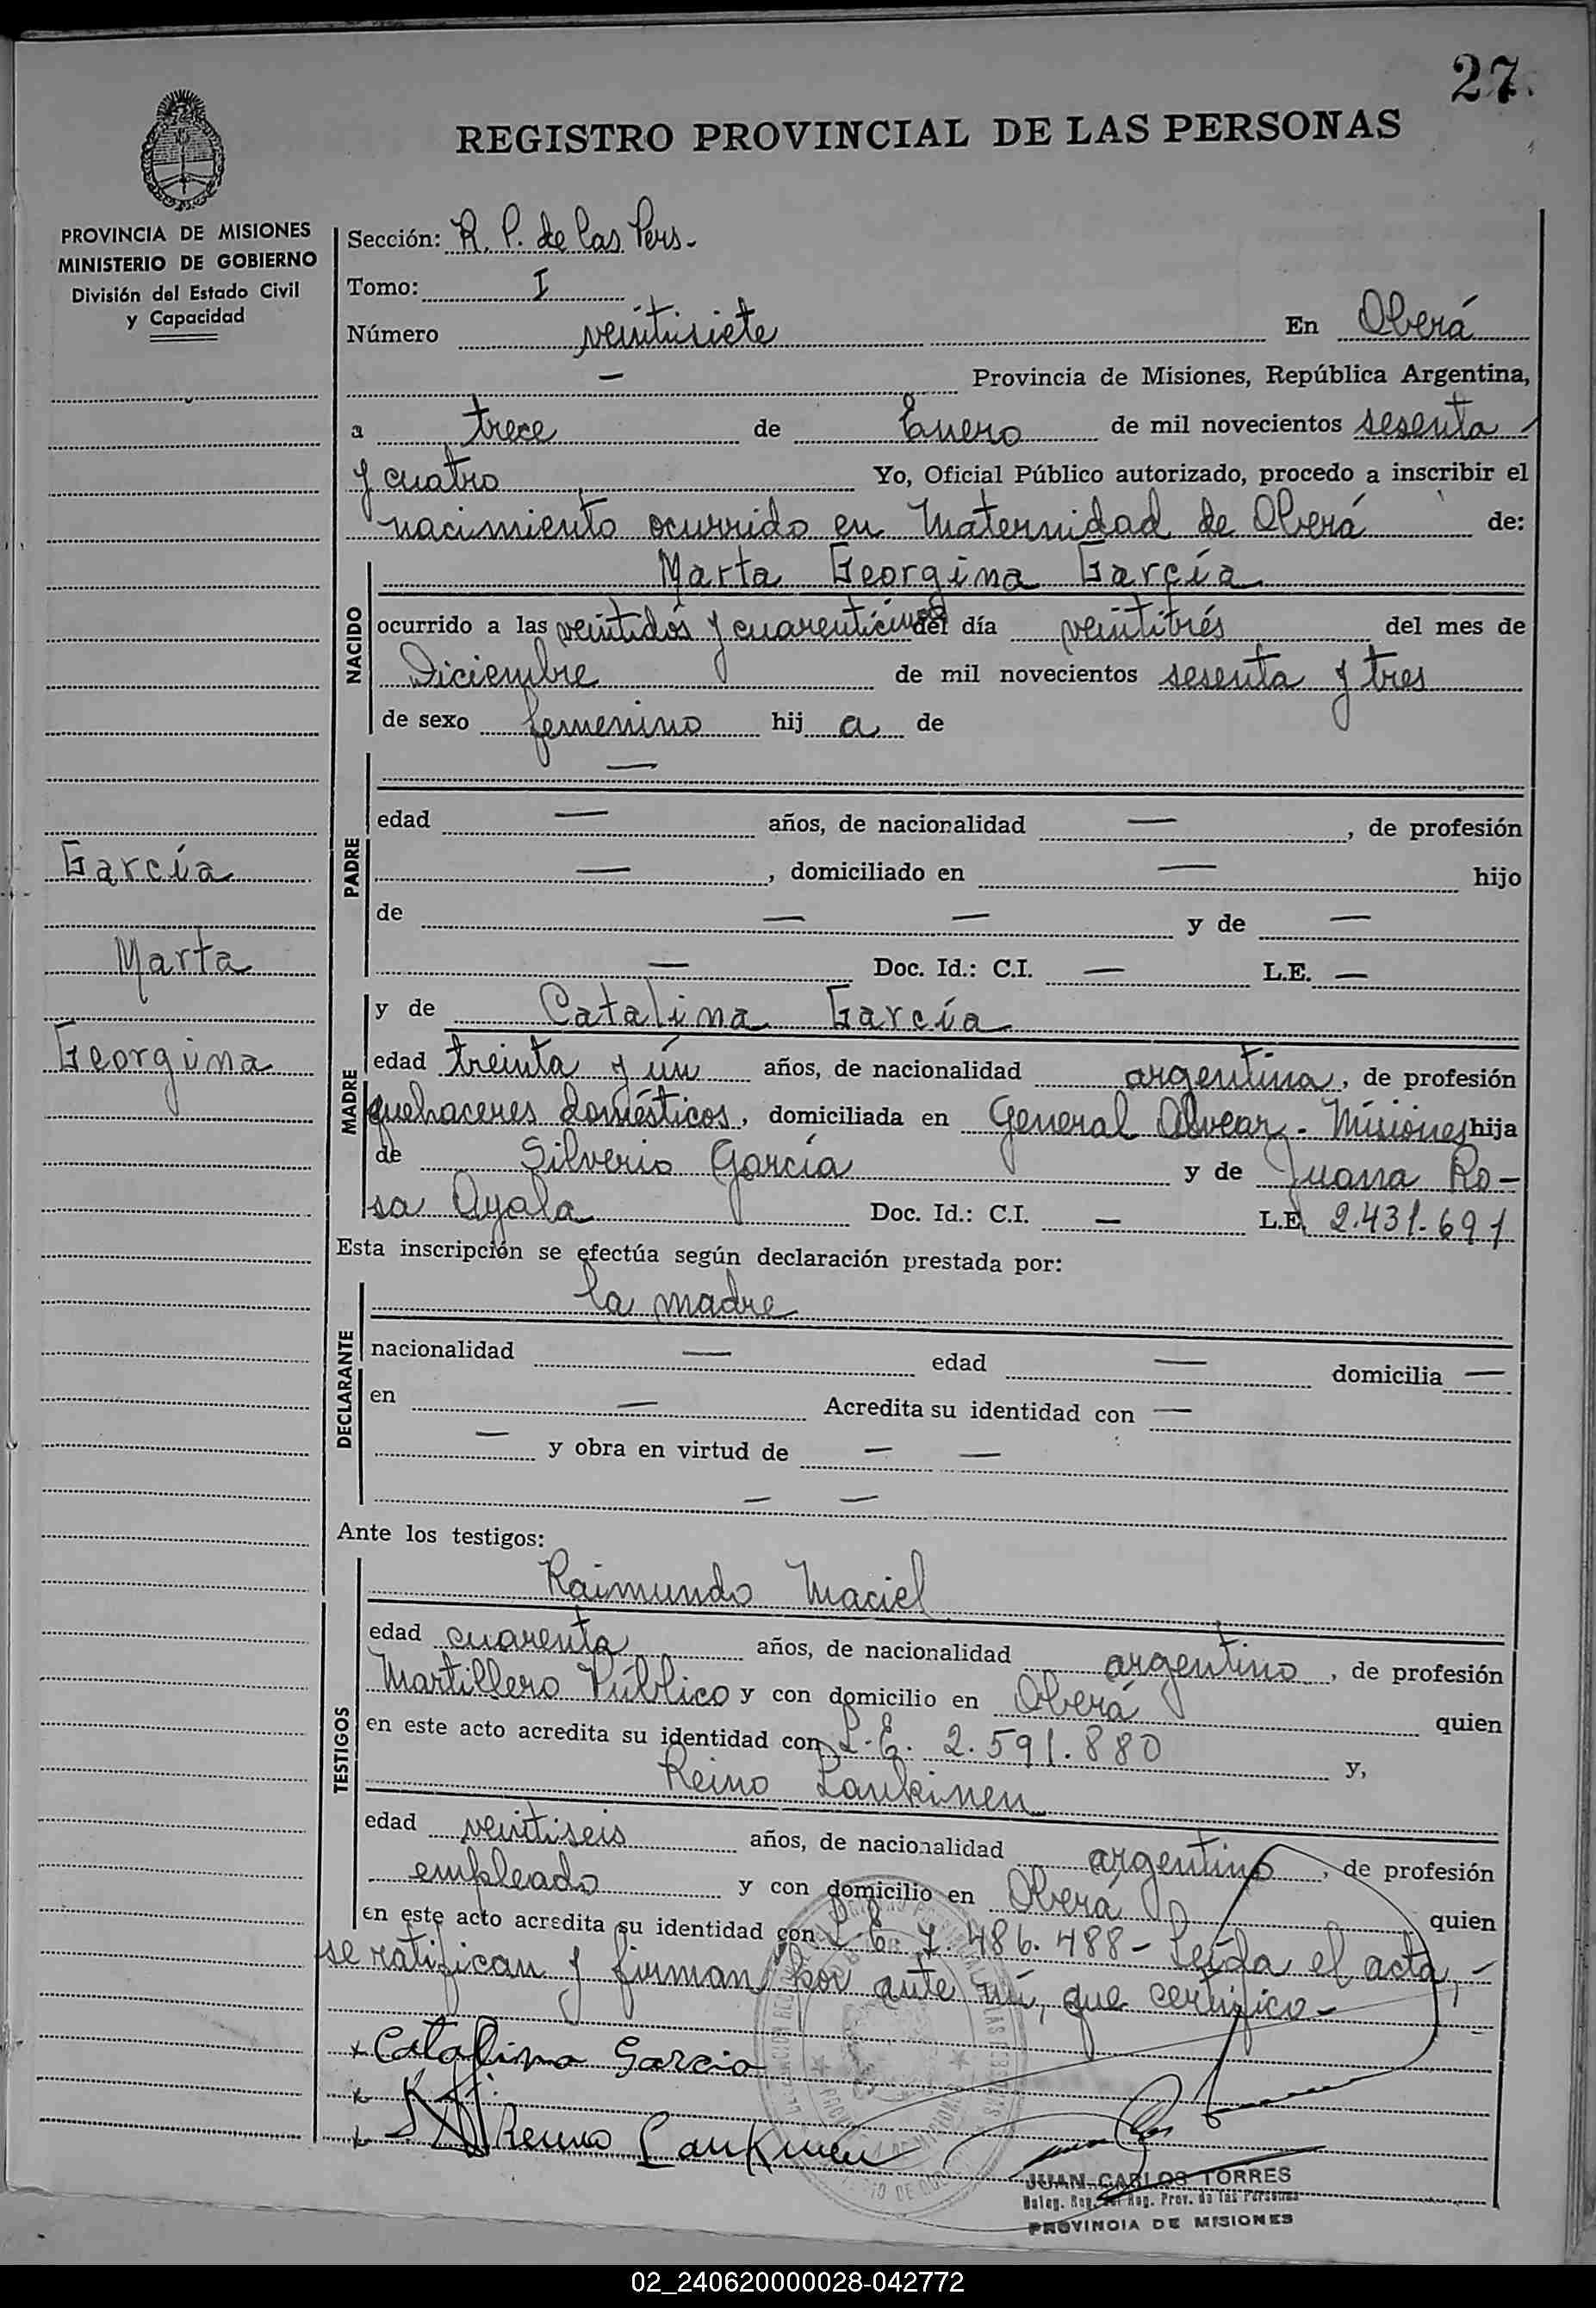 27.
REGISTRO PROVINCIAL DE LAS PERSONAS
PROVINCIA DE MISIONES
MINISTERIO DE GOBIERNO
División del Estado Civil
y Capacidad
Sección: R. P. de las Pers.
Tomo: I
Número veintisiete En Oberá
— Provincia de Misiones, República Argentina,
a trece de Enero de mil novecientos sesenta
y cuatro Yo, Oficial Público autorizado, procedo a inscribir el
nacimiento ocurrido en Maternidad de Oberá de:
NACIDO
Marta Georgina García
ocurrido a las veintidós y cuarenticinco del día veintitrés del mes de
Diciembre de mil novecientos sesenta y tres
de sexo femenino hij a de
PADRE
—
edad — años, de nacionalidad —, de profesión
—, domiciliado en — hijo
de — — y de —
— Doc. Id.: C.I. — L.E. —
García
Marta
Georgina
MADRE
y de Catalina García
edad treinta y ún años, de nacionalidad argentina, de profesión
quehaceres domésticos, domiciliada en General Alvear - Misiones hija
de Silverio García y de Juana Ro-
sa Ayala Doc. Id.: C.I. — L.E. 2.431.691
Esta inscripción se efectúa según declaración prestada por:
DECLARANTE
la madre
nacionalidad — edad — domicilia —
en — Acredita su identidad con —
— y obra en virtud de — —
— —
Ante los testigos:
TESTIGOS
Raimundo Maciel
edad cuarenta años, de nacionalidad argentino, de profesión
Martillero Público y con domicilio en Oberá quien
en este acto acredita su identidad con L.E. 2.591.880 y,
Reino Laukinen
edad veintiseis años, de nacionalidad argentino, de profesión
empleado y con domicilio en Oberá quien
en este acto acredita su identidad con L.E. 7.486.488 - Leída el acta, -
se ratifican y firman por ante mí, que certifico -
x Catalina Garcia
x
x Reino Laukinen
JUAN CARLOS TORRES
Deleg. Reg. del Reg. Prov. de las Personas
PROVINCIA DE MISIONES
02_240620000028-042772